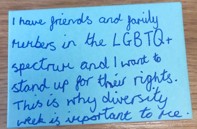 I have friends and family
members in the LGBTQ+
spectrum and I want to
stand up for their rights.
This is why diversity
week is important to me.